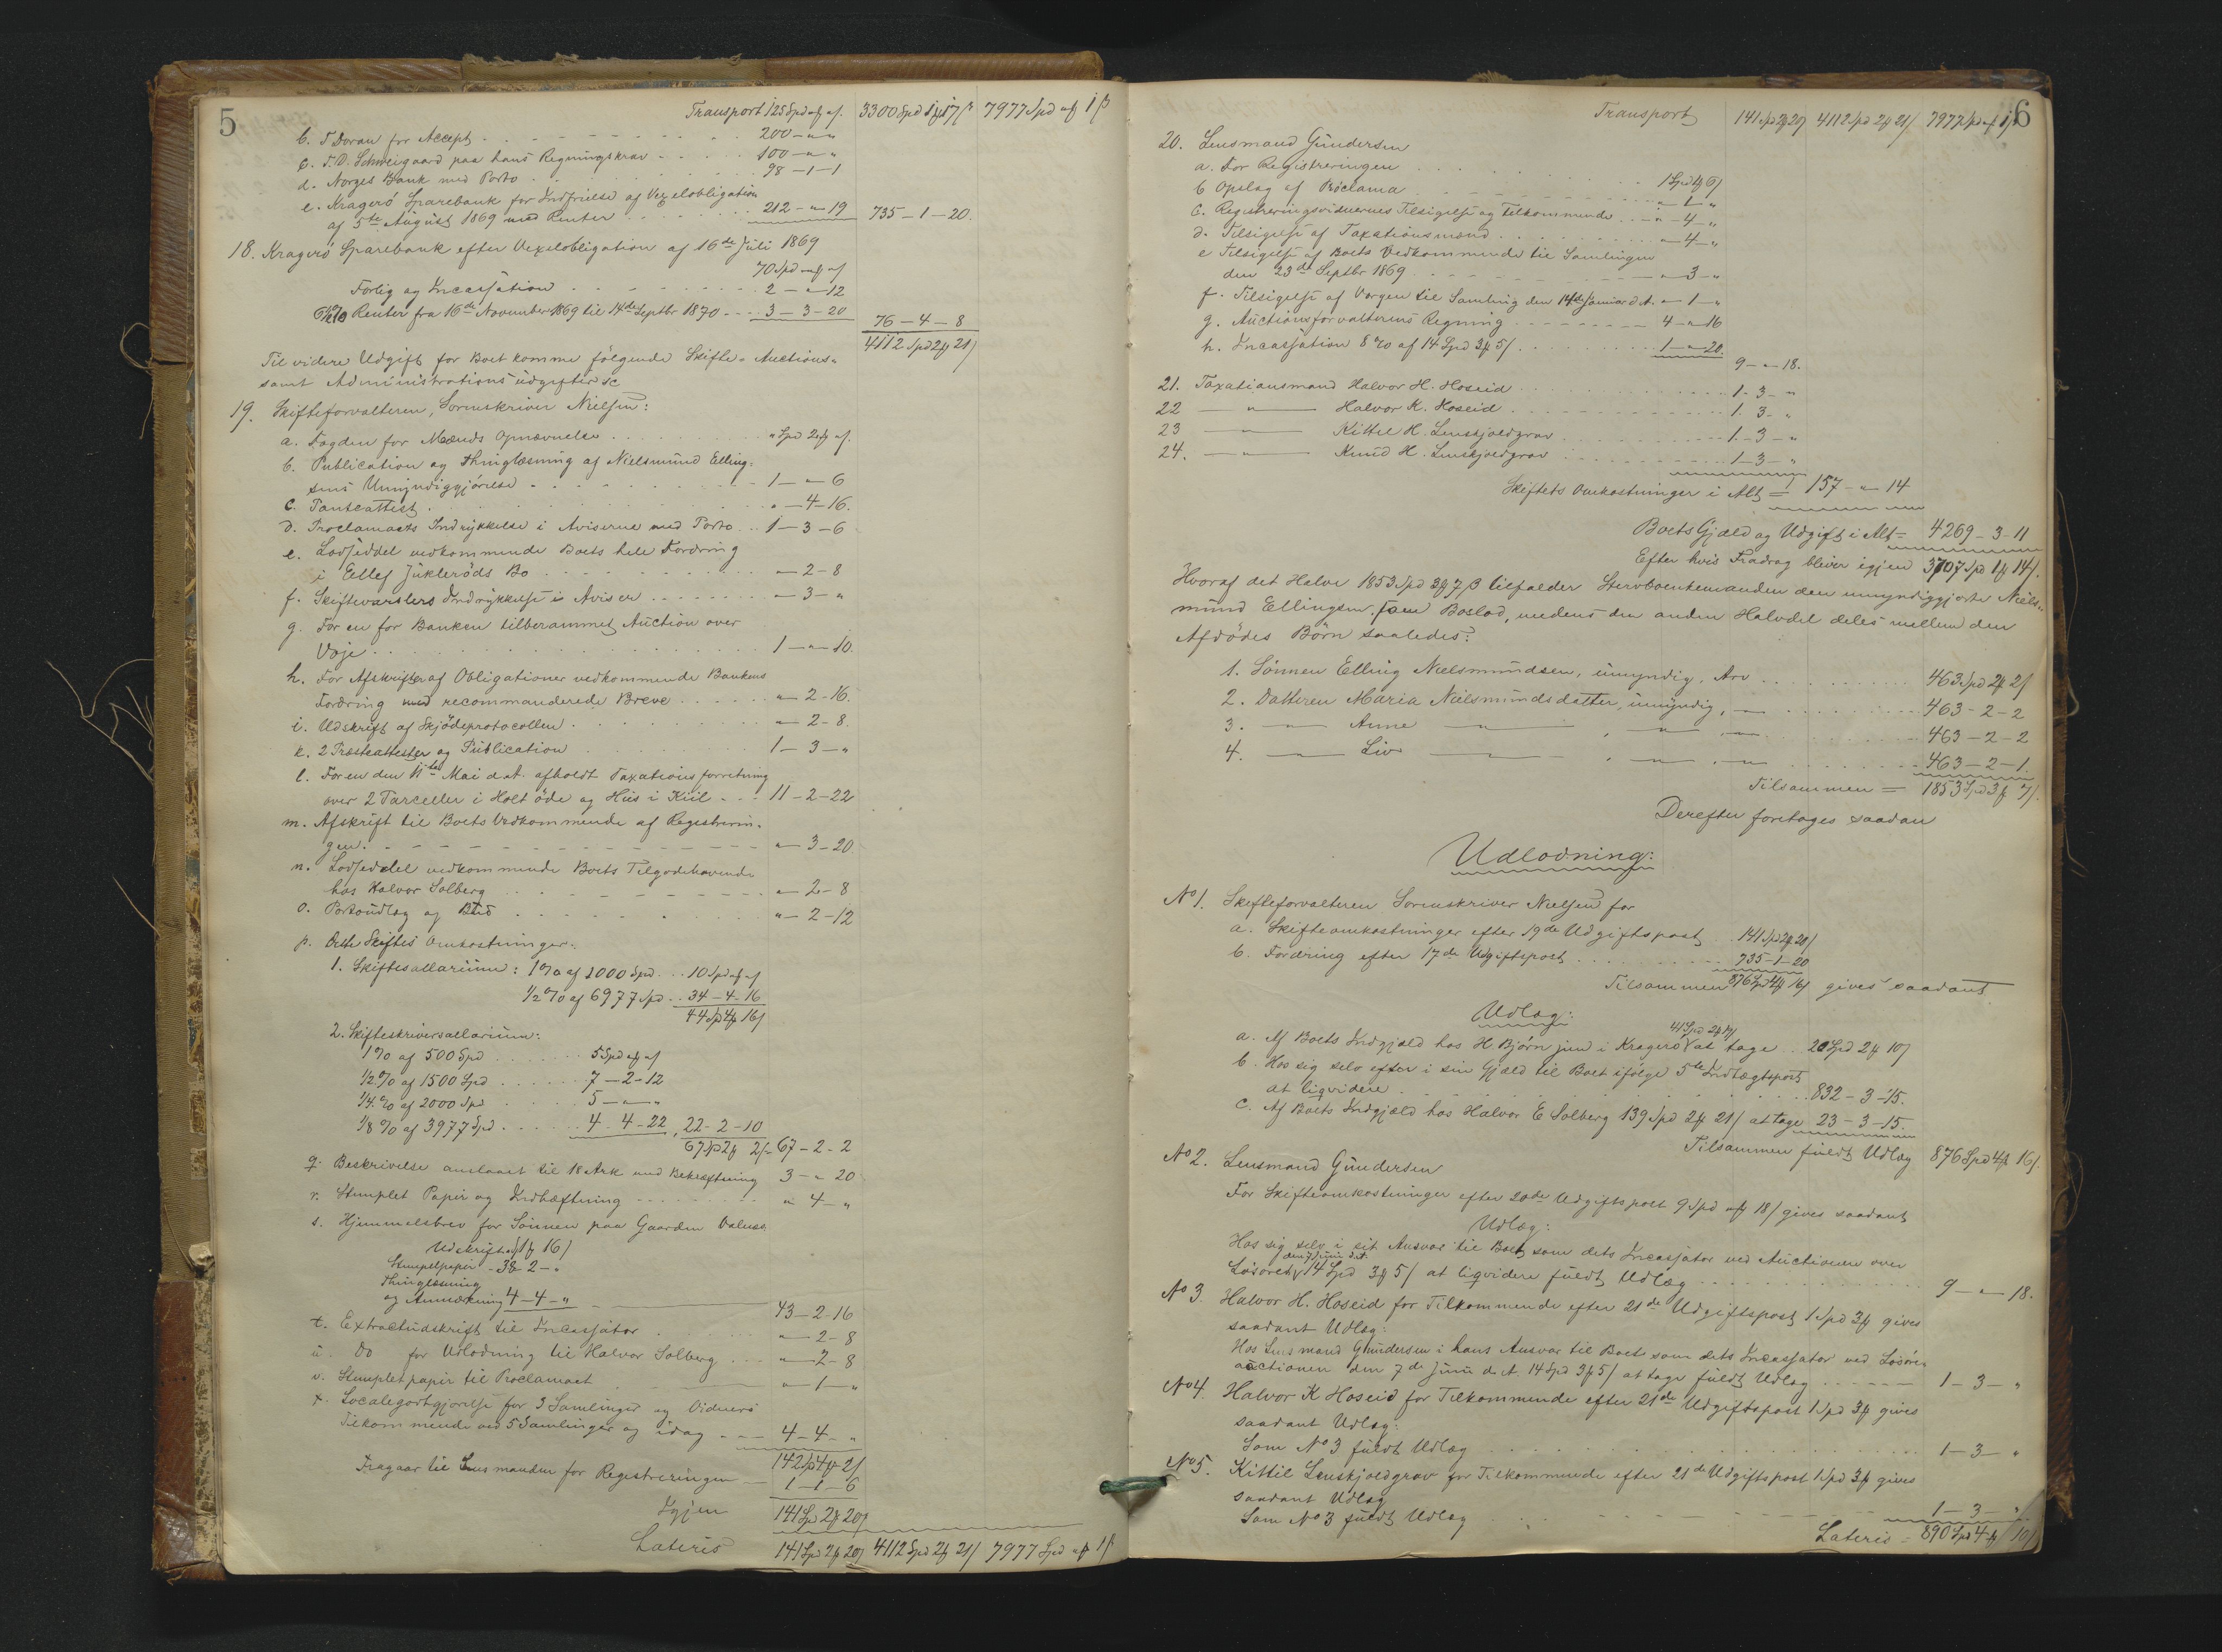 5
Transport 125 Spd " ƒ " ß. 3300 Spd 1 ƒ 17 ß 7977 Spd " ƒ 1 ß
b. T Doran for Accept 200 — " — "
c. T. O. Schweigaard paa hans Regningskrav 100 — " — "
d. Norges Bank med Porto 98 — 1 — 1
e. Kragerö Sparebank for Indfrielse af Vexelobligation
af 5te August 1869 med Renter 212 — " — 19 735 — 1 — 20.
18. Kragerö Sparebank efter Vexelobligation af 16de Juli 1869
70 Spd " ƒ " ß
Forlig og Incassation 2 — " — 12
6% Renter fra 16de November 1869 til 14de Septbr 1870 3 — 3 — 20 76 — 4 — 8
4112 Spd 2 ƒ 21 ß
Til videre Udgift for Boet komme fölgende Skifte- Auctions-
samt Administrationsudgifter &c
19. Skifteforvalteren, Sorenskriver Nielsen:
a. Fogden for Mænds Opnævnelse " Spd 2 ƒ " ß.
b. Publication og Thinglæsning af Nielsmund Elling-
sens Umyndiggjörelse 1 — " — 6
c. Panteattest " — 4 — 16.
d. Proclamaets Indrykkelse i Aviserne med Porto 1 — 3 — 6
e. Lodseddel vedkommende Boets hele Fordring
i Ellef Jukleröds Bo " — 2 — 8
f. Skiftevarslers Indrykkelse i Aviser " — 3 — "
g. For en for Banken tilberammet Auction over
Voje 1 — " — 10.
h. For Afskrifter af Obligationer vedkommende Bankens
Fordring med recommanderede Breve " — 2 — 16.
i. Udskrift af Skjödeprotocollen " — 2 — 8.
k. 2 Præsteattester og Publication 1 — 3 — "
l. For en den 11te Mai d. A. afholdt Taxationsforretning
over 2 Parceller i Holt öde og Hus i Kiil 11 — 2 — 22
m. Afskrift til Boets Vedkommende af Registrerin-
gen " — 3 — 20
n. Lodseddel vedkommende Boets Tilgodehavende
hos Halvor Solberg " — 2 — 8
o. Portoudlæg og Bud " — 2 — 12
p. Dette Skiftes Omkostninger:
1. Skiftesallarium: 1% af 1000 Spd 10 Spd " ƒ " ß
1/2% af 6977 Spd 34 — 4 — 16
44 Spd 4 ƒ 16 ß
2. Skifteskriversallarium:
1% af 500 Spd 5 Spd " ƒ " ß
1/2% af 1500 Spd 7 — 2 — 12
1/4% af 2000 Spd 5 — " — "
1/8% af 3977 Spd 4 — 4 — 22 22 — 2 — 10
67 Spd 2 ƒ 2 ß = 67 — 2 — 2
q. Beskrivelse anslaaet til 18 Ark med Bekræftning 3 — " 20
r. Stemplet Papir og Indhæftning " 4 — "
s. Hjemmelsbrev for Sönnen paa Gaarden
Udskrift 1 ƒ 16 ß
Stempelpapir 38 — 2 — "
Thinglæsning
og Anmærkning 4 — 4 — " 43 — 2 — 16
t. Extractudskrift til Incassator " — 2 — 8
u. Do for Udlodning til Halvor Solberg " — 2 — 8
v. Stempletpapir til Proclamaet " — 1 — "
x. Localegodtgjörelse for 3 Samlinger og Vidners
Tilkommende ved 5 Samlinger og idag 4 — 4 — "
142 Spd 4 ƒ 2 ß
Fragaar til Lensmanden for Registreringen 1 — 1 — 6
Igjen 141 Spd 2 ƒ 20 ß
Lateris 141 Spd 2 ƒ 20 ß 4112 Spd 2 ƒ 21 ß 7977 Spd " ƒ 1 ß
6
Transport 141 Spd 2 ƒ 20 ß 4112 Spd 2 ƒ 21 ß 7977 Spd " ƒ 1 ß
20. Lensmand Gundersen
a. For Registreringen 1 Spd 1 ƒ 6 ß
b Opslag af Proclama " — 1 — "
c. Registreringsvidnernes Tilsigelse og Tilkommende " — 4 — "
d. Tilsigelse af Taxationsmænd " — 4 — "
e Tilsigelse af Boets Vedkommende til Samlingen
den 23de Septbr 1869 " — 3 — "
f. Tilsigelse af Værgen til Samling den 14de Januar d. A. " — 1 — "
g. Auctionsforvalterens Regning 4 — " — 16
h. Incassation 8% af 14 Spd 3 ƒ 5 ß 1 — " — 20.
9 — " — 18.
21. Taxationsmand Halvor H. Hoseid 1 — 3 — "
22 — " — Halvor K. Hoseid 1. 3. "
23 — " — Kittil H. Lenskjoldgrav 1. — 3 — "
24. — " — Knud H. Lenskjoldgrav 1 — 3 — "
Skiftets Omkostninger i Alt = 157 — " — 14
Boets Gjæld og Udgift i Alt = 4269 — 3 — 11
Efter hvis Fradrag bliver igjen 3707 Spd 1 ƒ 14 ß.
Hvoraf det Halve 1853 Spd 3 ƒ 7 ß tilfalder Stervboenkemanden den umyndiggjorte Niels-
mund Ellingsen som Boslod, medens den anden Halvdel deles mellem den
Afdödes Börn saaledes:
1. Sönnen Elling Nielsmundsen, umyndig, Arv 463 Spd 2 ƒ 2 ß
2. Datteren Maria Nielsmundsdatter, umyndig, — 463 — 2 — 2
3. — Anne — , — , — 463 — 2 — 2
4. — Liv — , — , — 463 — 2 — 1.
Tilsammen = 1853 Spd 3 ƒ 7 ß.
Derefter foretages saadan
Udlodning:
No 1. Skifteforvalteren Sorenskriver Nielsen for
a. Skifteomkostninger efter 19de Udgiftspost 141 Spd 2 ƒ 20 ß
b. Fordring efter 17de Udgiftspost 735 — 1 — 20
Tilsammen 876 Spd 4 ƒ 16 ß gives saadant
Udlæg:
a. Af Boets Indgjæld hos H. Bjørn jun i Kragerö 41 Spd 2 ƒ at tage 20 Spd 2 ƒ 10 ß
b. Hos sig selv efter i sin Gjæld til Boet ifölge 5te Indtægtspost
at liqvidere 832 — 3 — 15.
c. Af Boets Indgjæld hos Halvor E Solberg 139 Spd 2 ƒ 21 ß at tage 23 — 3 — 15.
Tilsammen fuldt Udlæg 876 Spd 4 ƒ 16 ß.
No 2. Lensmand Gundersen
For Skifteomkostninger efter 20de Udgiftspost 9 Spd " ƒ 18 ß gives saadant
Udlæg:
Hos sig selv i sit Ansvar til Boet som dets Incassator ved Auctionen over
Lösöret den 7 Juni d. A. 14 Spd 3 ƒ 5 ß at liqvidere fuldt Udlæg 9 — " — 18.
No 3. Halvor H. Hoseid for Tilkommende efter 21de Udgiftspost 1 Spd 3 ƒ gives
saadant Udlæg:
Hos Lensmand Gundersen i hans Ansvar til Boet som dets Incassator ved Lösöre-
auctionen den 7de Juni d. A. 14 Spd 3 ƒ 5 ß at tage fuldt Udlæg 1 — 3 — "
No 4. Halvor K Hoseid for Tilkommende efter 21de Udgiftspost 1 Spd 3 ƒ gives
saadant Udlæg:
Som No 3 fuldt Udlæg 1 — 3 — "
No 5. Kittil Lenskjoldgrav for Tilkommende efter 21de Udgiftspost 1 Spd 3 ƒ gives
saadant Udlæg
Som No 3 fuldt Udlæg 1 — 3 — "
Lateris = 890 Spd 4 ƒ 10 ß